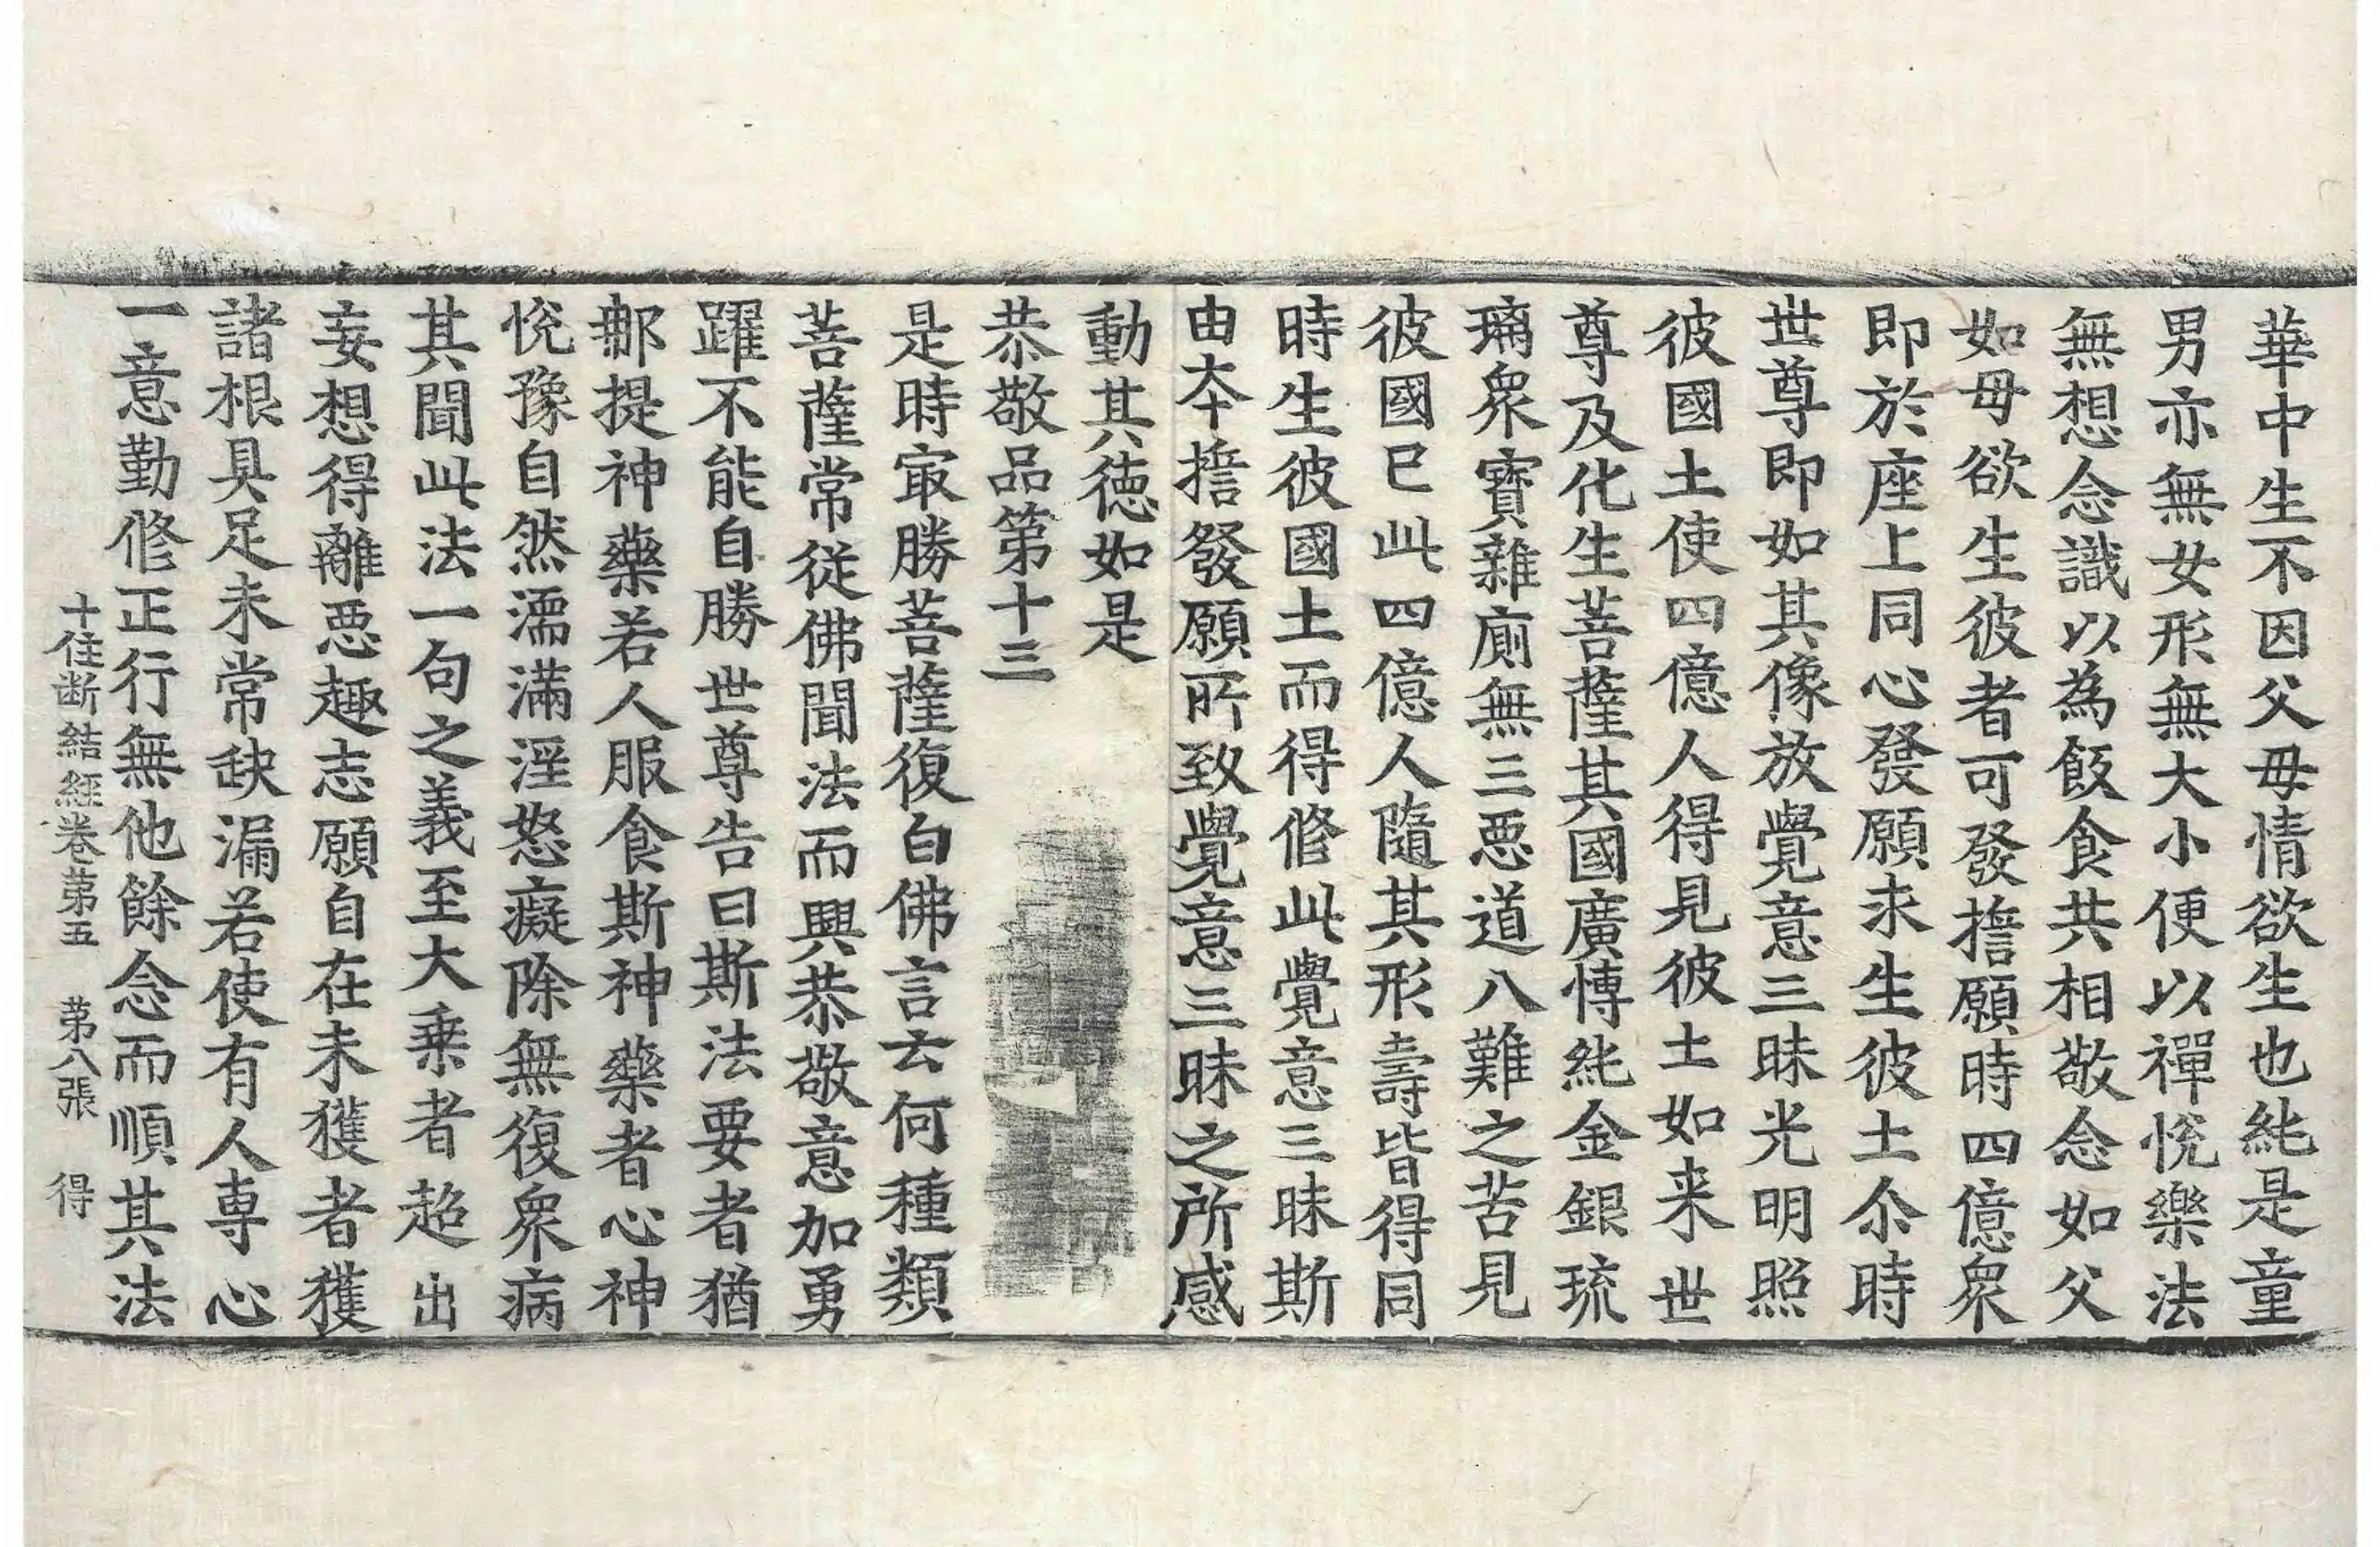 華中生不因父母情欲生也純是童
男亦無女形無大小便以禪悅樂法
無想念識以為飯食共相敬念如父
如母欲生彼者可發擔願時四億衆
即於座上同心發願求生彼土尒時
世尊即如其像放覺意三昧光明照
彼國土使四億人得見彼土如来世
尊及化生菩薩其國廣博純金銀琉
璃衆寶雜廁無三悪道八難之苦見
彼國已此四億人隨其形壽皆得同
時生彼國土而得修此覺意三昧斯
由夲擔發願所致覺意三昧之所感
動其德如是
恭敬品第十三
是時冣勝菩薩復白佛言云何種類
菩薩常從佛聞法而興恭敬意加勇
躍不能自勝世尊告曰斯法要者猶
鄁提神藥若人服食斯神藥者心神
悅豫自然濡滿淫怒癡除無復衆病
其聞此法一句之義至大乗者超出
妄想得離悪趣志願自在未獲者獲
諸根具足未常缺漏若使有人専心
一意勤修正行無他餘念而順其法
十住断結經卷第五　第八張　得